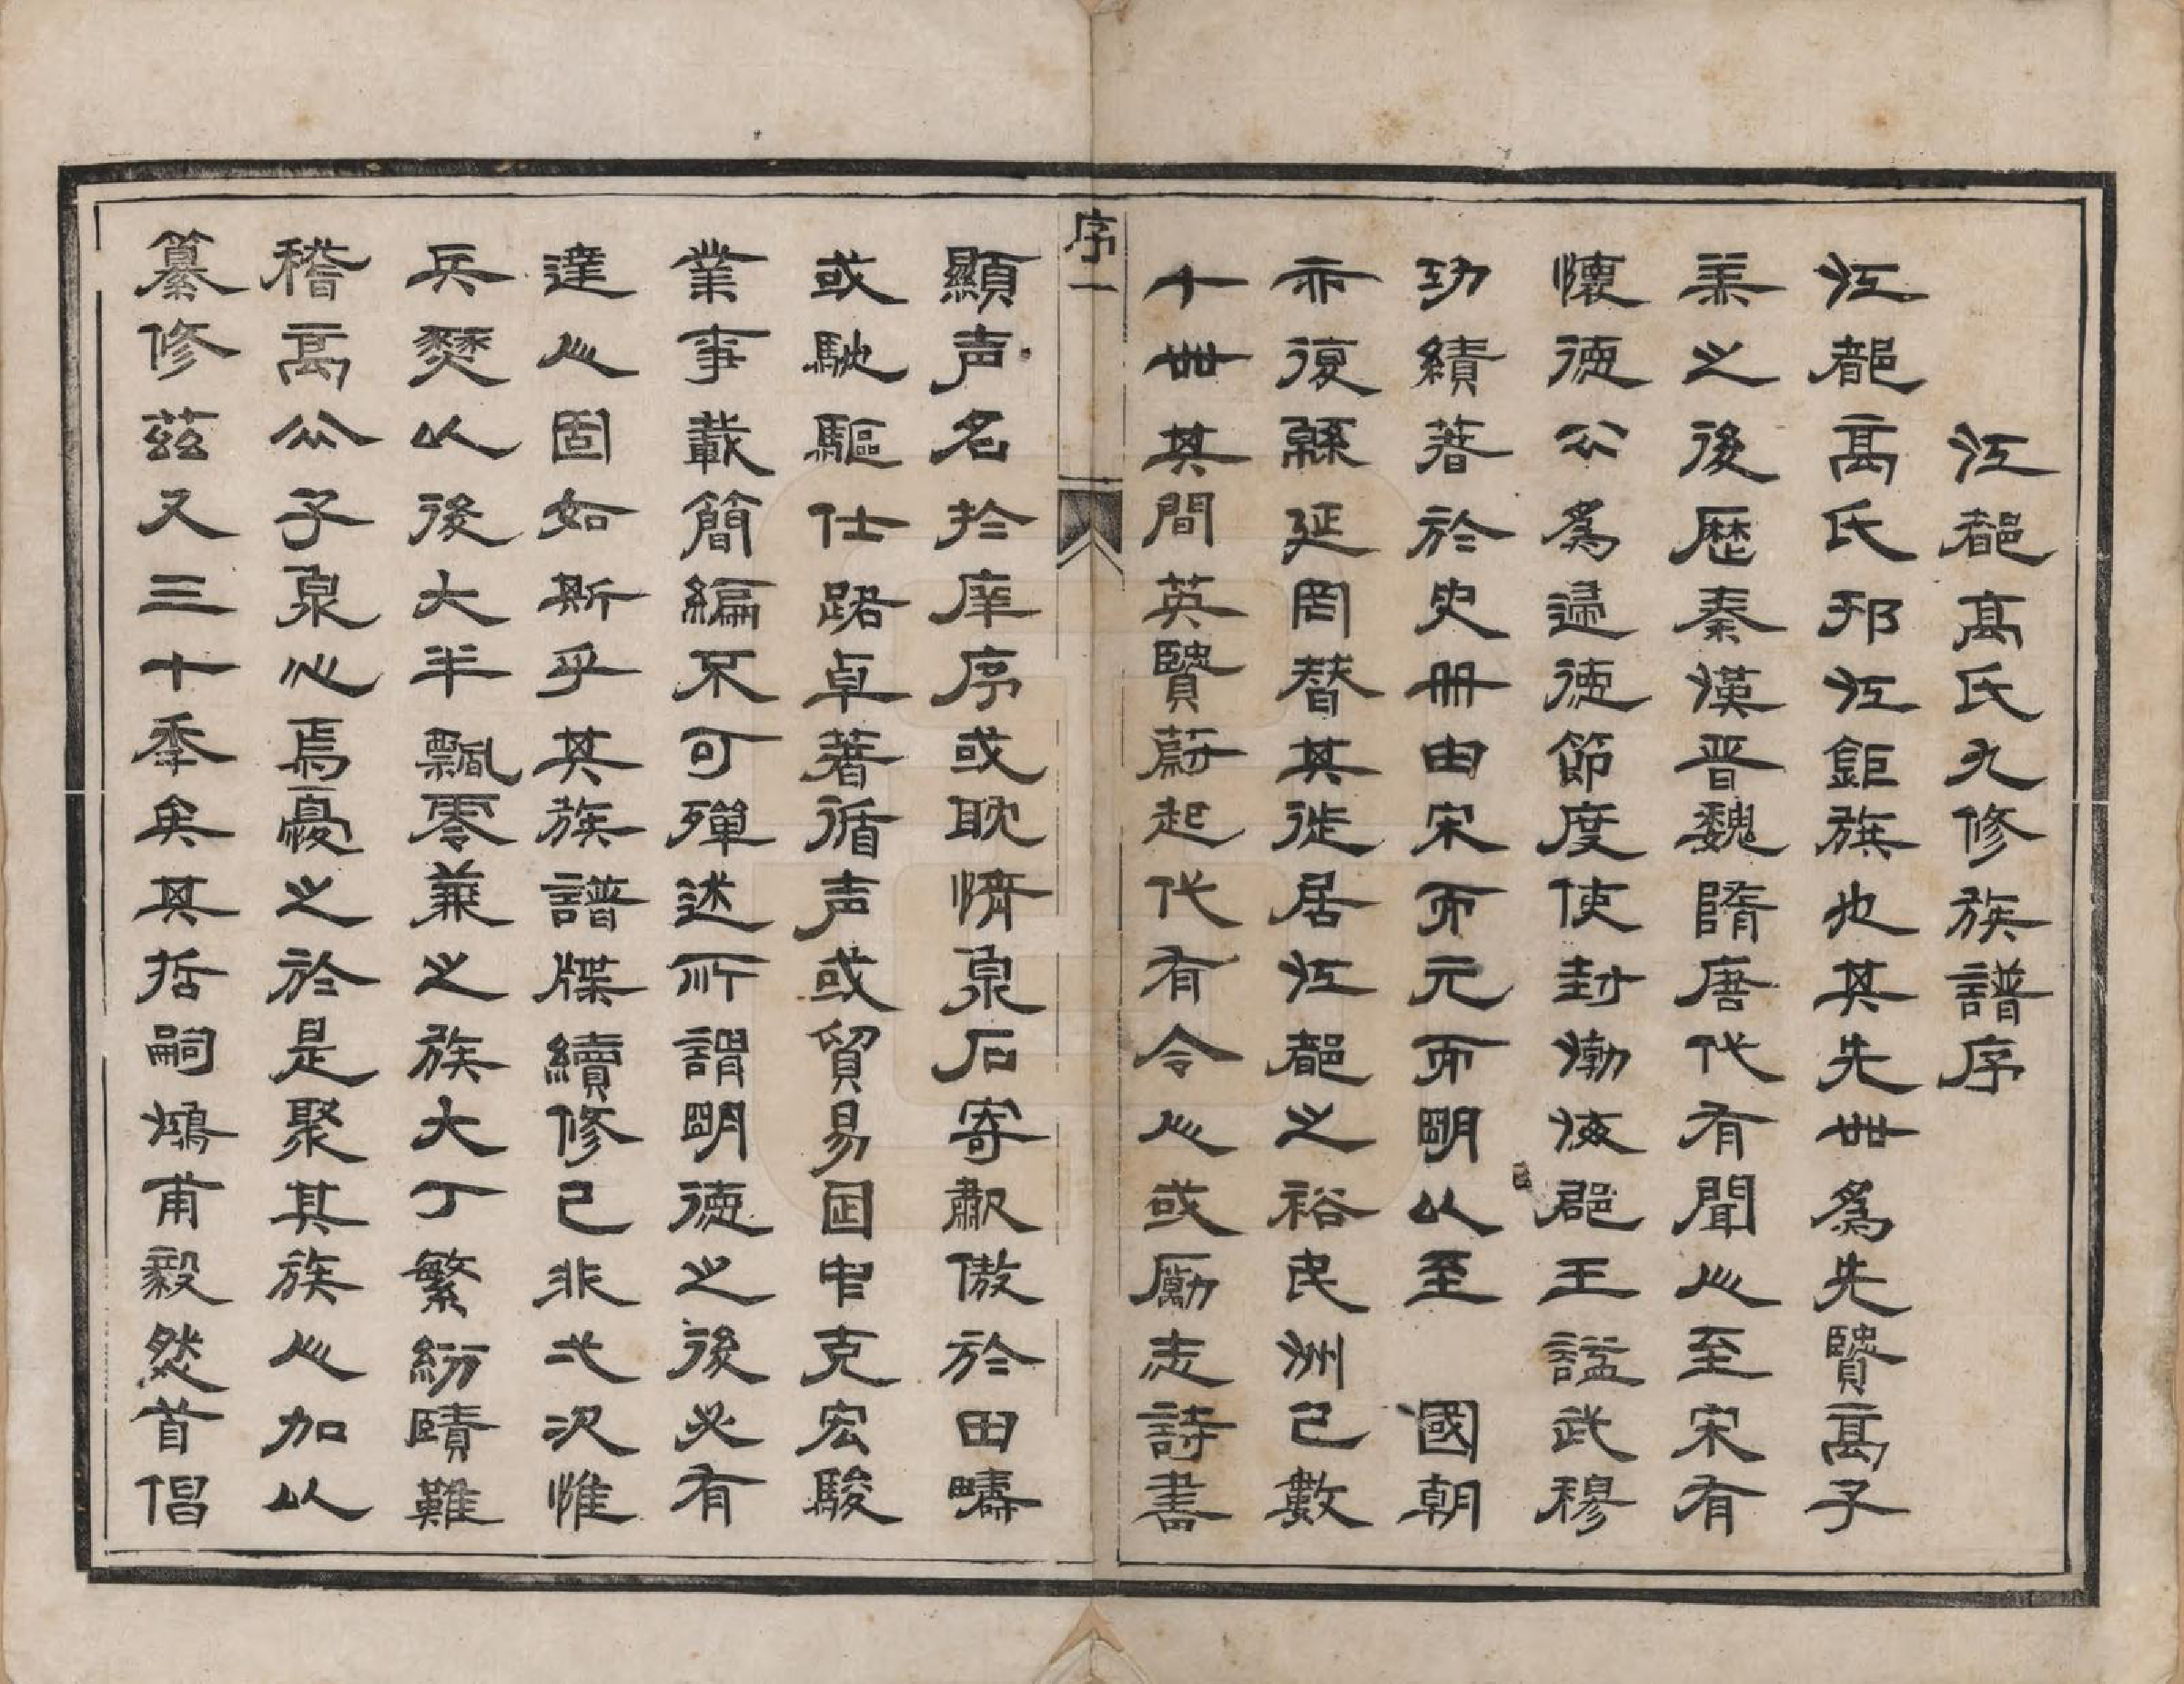 江都高氏九修族譜序
江都高氏邗江鉅族也其先世爲先賢高子
羔之後歷秦漢晋魏隋唐代有聞人至宋有
懷德公爲歸德節度使封渤海郡王諡武穆
功績著於史册由宋而元而明以至　國朝
亦復緜延罔替其徙居江都之裕民洲已數
十世其間英賢蔚起代有令人或勵志詩書
序一
顯声名扵庠序或耽情泉石寄歗傲於田疇
或馳驅仕路卓著循声或貿易囯中克宏駿
業事載簡編不可殫述所謂明德之後必有
達人固如斯乎其族譜牒續修已非弍次惟
兵燹以後大半飄零兼之族大丁繁紛賾難
稽高公子泉心焉憂之於是聚其族人加以
纂修茲又三十季矣其哲嗣鴻甫毅然首倡